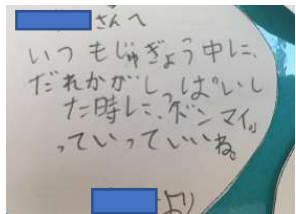 さんへ
いつもじゅぎょう中に、
だれかがしっぱいし
た時に、「ドンマイ」
っていっていいね。
より